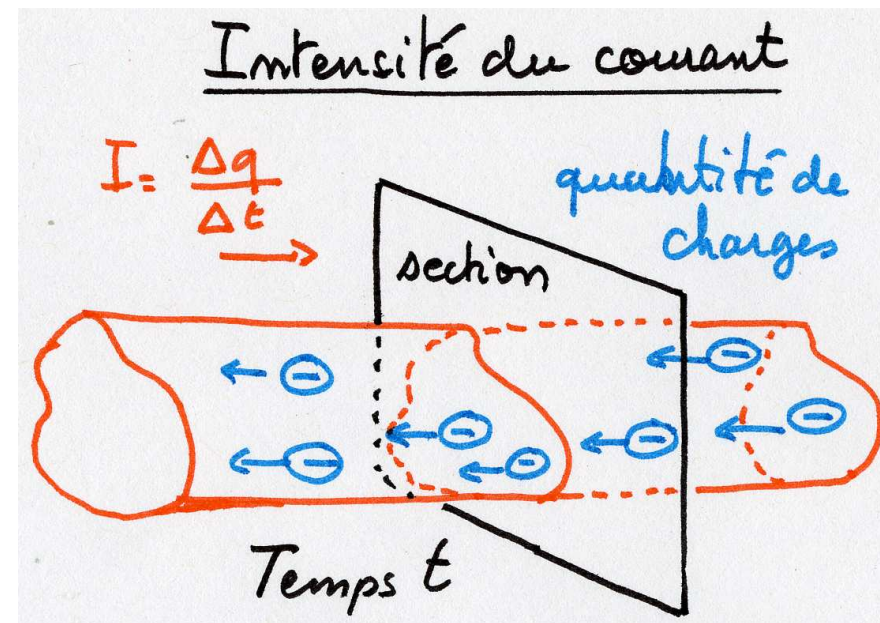 Intensité du courant
I = Δq / Δt
quantité de
charges
section
- - - - - - - -
Temps t